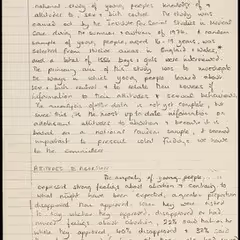 national study of young peoples knowledge of &
attitudes to, sex & birth control. The study was
carried out by the Institute for Social Studies in Medical
Care during the summer & autumn of 1974. A random
sample of young people, aged 16 - 19 years, was
selected from twelve areas in England & Wales,
and a total of 1556 boys & girls were interviewed.
The primary aim of the study was to investigate
the ways in which young people learned about
sex & birth control & to relate their
information to their attitudes & sexual behaviour.
The analysis of the data is not yet complete, but
since this is the most up to date information on
adolescent attitudes to abortion & because it is
based on a national random sample, it seemed
important to present what findings we have
to the committee.
ATTITUDES TO ABORTION
The majority of young people
expressed strong feelings about abortion & contrary to
what might have been expected, a greater proportion
disapproved than approved. When they were asked
to say whether they approved, disapproved or had
feelings about abortion, 22% said
they approved, 40% disapproved & 38% said